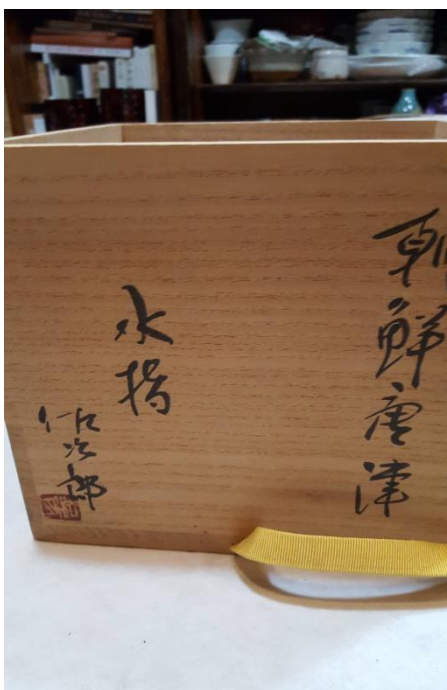 朝鮮唐津
水指
佐次郎